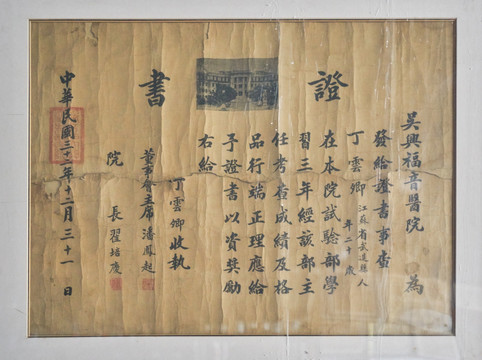 證書
吳興福音醫院 為
發給證書事查
丁雲卿 江蘇省武進縣人
年二十歲
在本院試驗部學
習三年經該部主
任考查成績及格
品行端正理應給
予證書以資獎勵
右給
丁雲卿收執
董事會主席潘鳳起
院長翟培慶
中華民國三十二年十二月三十一日